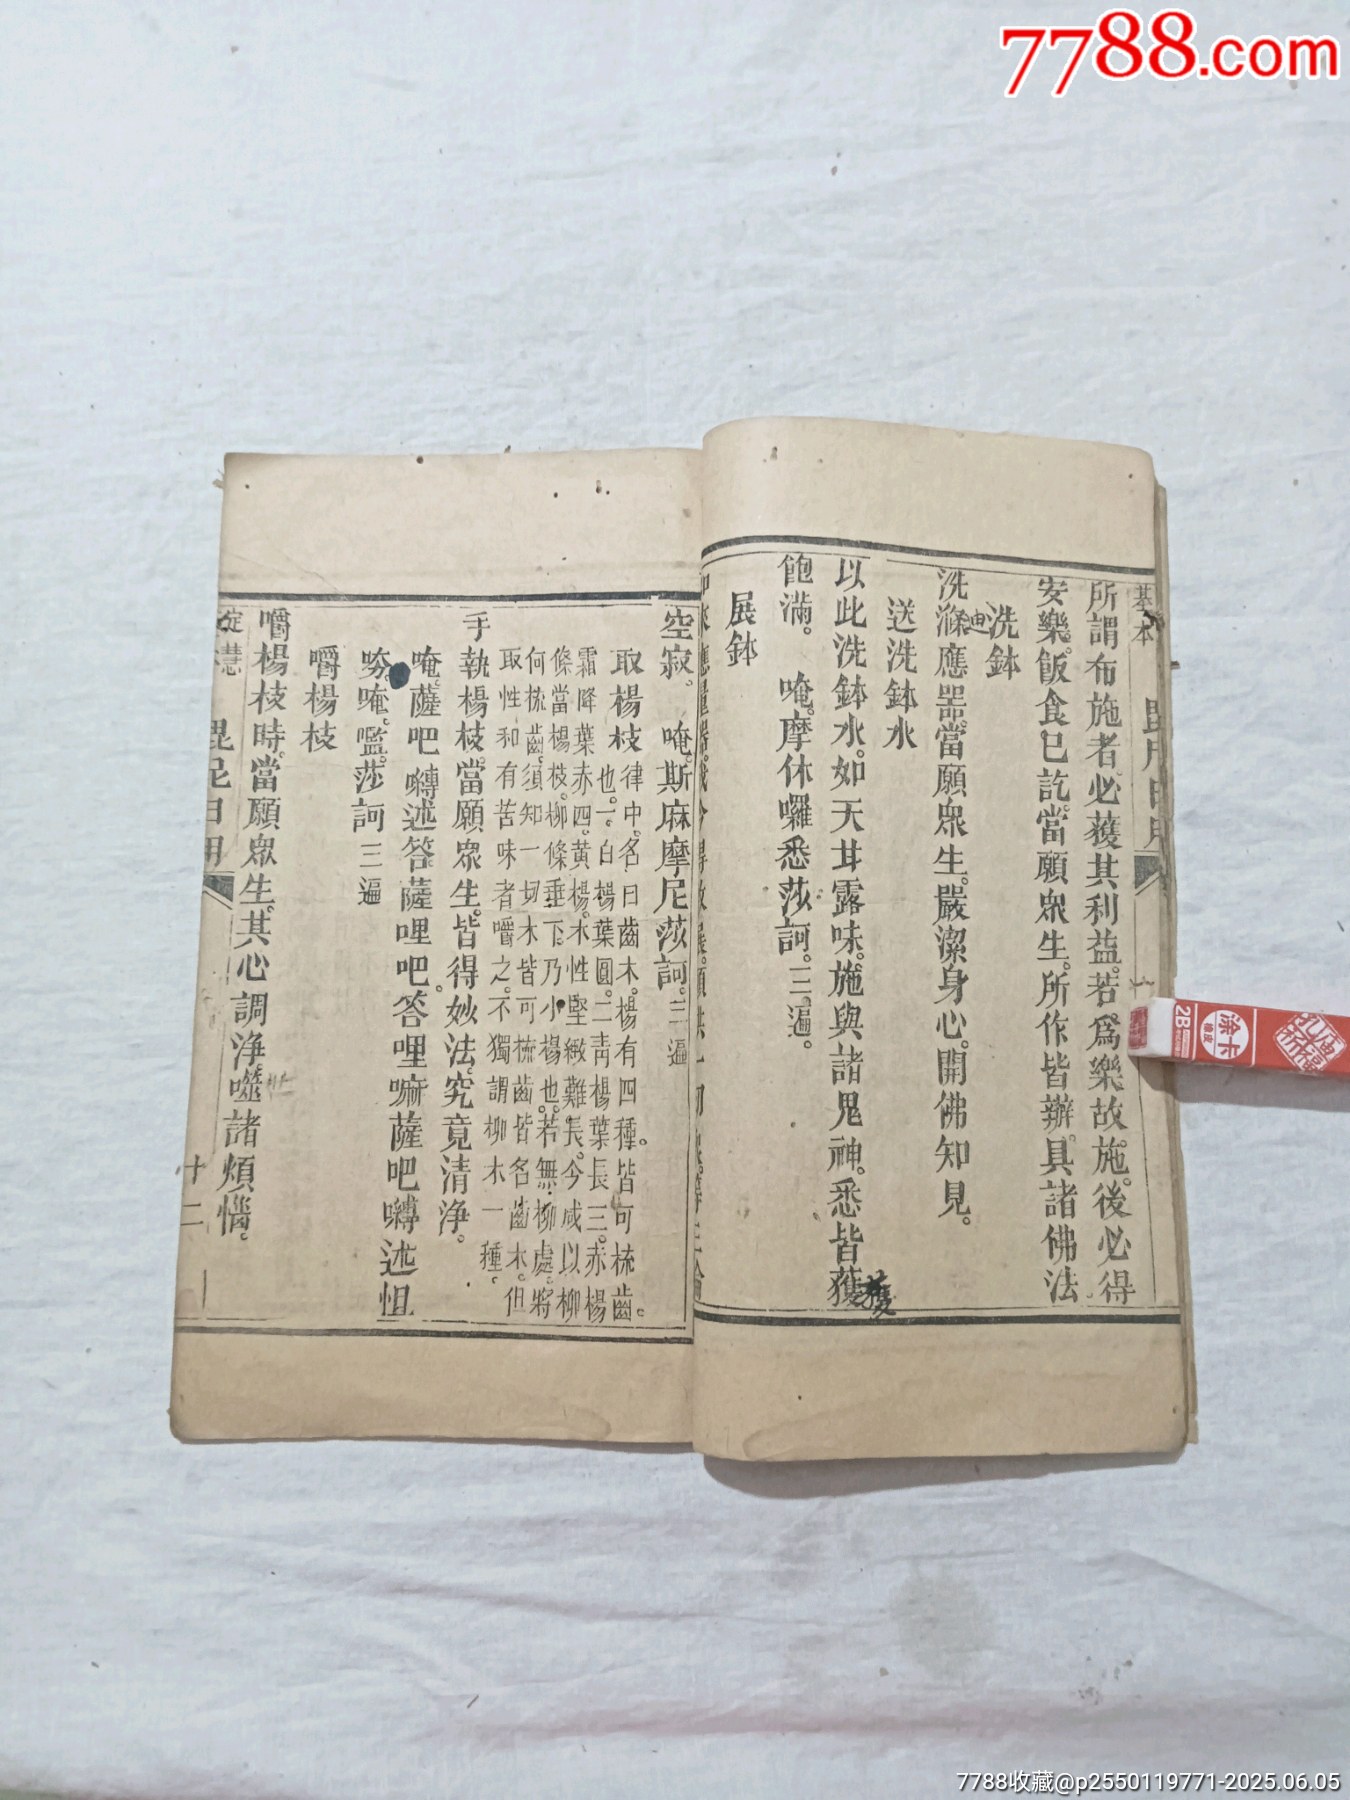 7788.com
基本
毘尼日用
所謂布施者。必獲其利益。若爲樂故施。後必得
安樂。飯食已訖。當願眾生。所作皆辦。具諸佛法
洗鉢
洗滌應器。當願眾生。嚴潔身心。開佛知見。
送洗鉢水
以此洗鉢水。如天甘露味。施與諸鬼神。悉皆獲
獲
飽滿。 唵。摩休囉悉莎訶。三遍。
展鉢
空寂。 唵。斯麻摩尼莎訶。三遍
取楊枝 律中。名曰齒木。楊有四種。皆可梳齒。
也。一白楊葉圓。二青楊葉長。三赤楊
霜降葉赤。四黄楊。木性堅緻難長。今咸以柳
條當楊枝。柳條垂下。乃小楊也。若無柳處。將
何梳齒。須知一切木皆可梳齒。皆名齒木。但
取性和有苦味者嚼之。不獨謂柳木一種。
手執楊枝。當願眾生。皆得妙法。究竟清淨。
唵。薩吧嚩述答薩哩吧。答哩嘛薩吧嚩述怛
㘕。唵。嚂。莎訶 三遍
嚼楊枝
嚼楊枝時。當願眾生。其心調淨。噬諸煩惱。
定慧
毘尼日用
十二
2B
涂卡
橡皮
7788收藏@p2550119771-2025.06.05